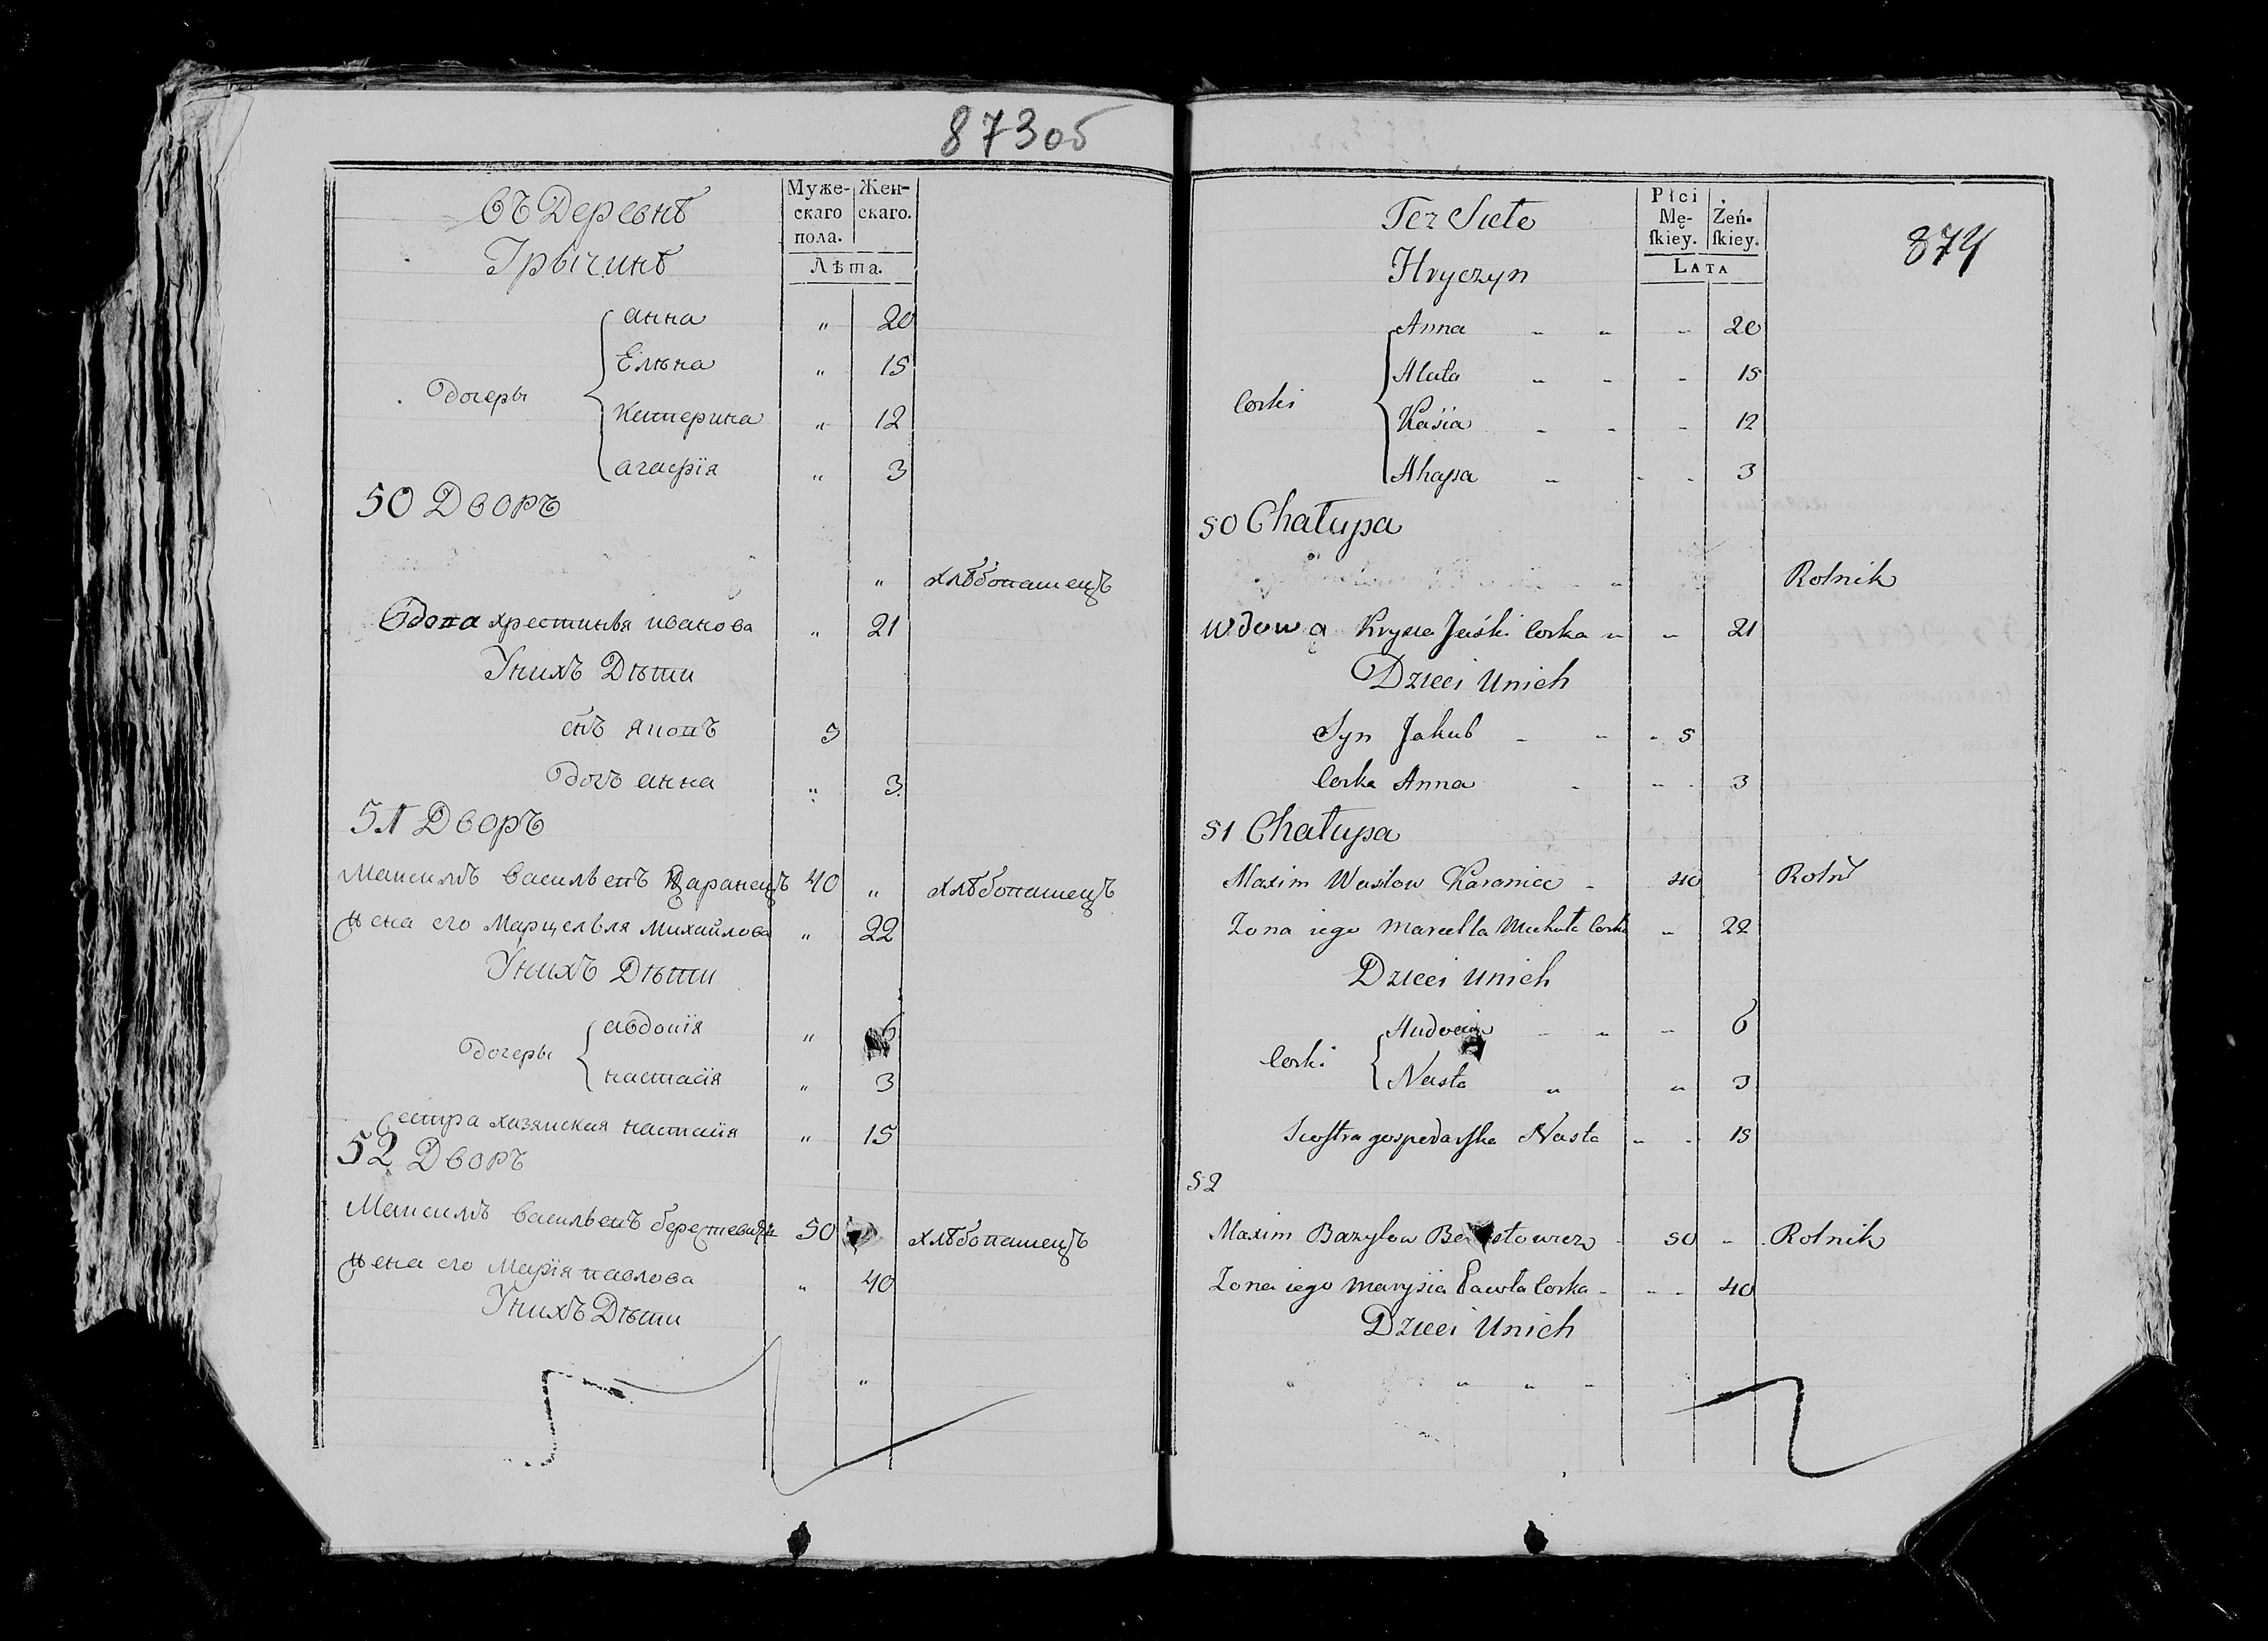 873об
Въ Деревнѣ
Грычинѣ
Муже-
скаго
пола.
Жен-
скаго.
Лѣта.
анна " 20
Елѣна " 15
дочеры
Катерина " 12
агафїя " 3
50 Дворъ
" хлѣбопашецъ
Вдова христинѣя иванова " 21
Унихъ Дѣти
снъ яковъ 5
дочъ анна " 3
51 Дворъ
Максимъ васильевъ Царанецъ 40 " хлѣбопашецъ
жена его Марцелѣля михайлова " 22
Унихъ Дѣти
авдокїя " 6
дочеры
настасїя " 3
Сестра хазяиская настасїя " 15
52 Дворъ
Максимъ васильевъ берестевичъ 50 хлѣбопашецъ
жена его Марїя павлова " 40
Унихъ Дѣти
"
874
Teź Sieło
Hryczyn
Płci
Mę-
ſkiey.
Żeń-
ſkiey.
LATA
Anna 20
Aluta 15
Corki
Kasia 12
Ahapa 3
50 Chałupa
Rolnik
wdowa Krysia Jaśki Corka 21
Dzieci Unich
Syn Jakub 5
Corka Anna 3
51 Chałupa
Maxim Wasilow Karaniec 40 Rolnik
Zona iego Marcella Michała Corka 22
Dzieci Unich
Audocia 6
Corki
Nasta 3
Sioſtra gospodarſka Nasta 15
52
Maxim Bazylow Berestowicz 50 Rolnik
Zona iego Marysia Pawła Corka 40
Dzieci Unich